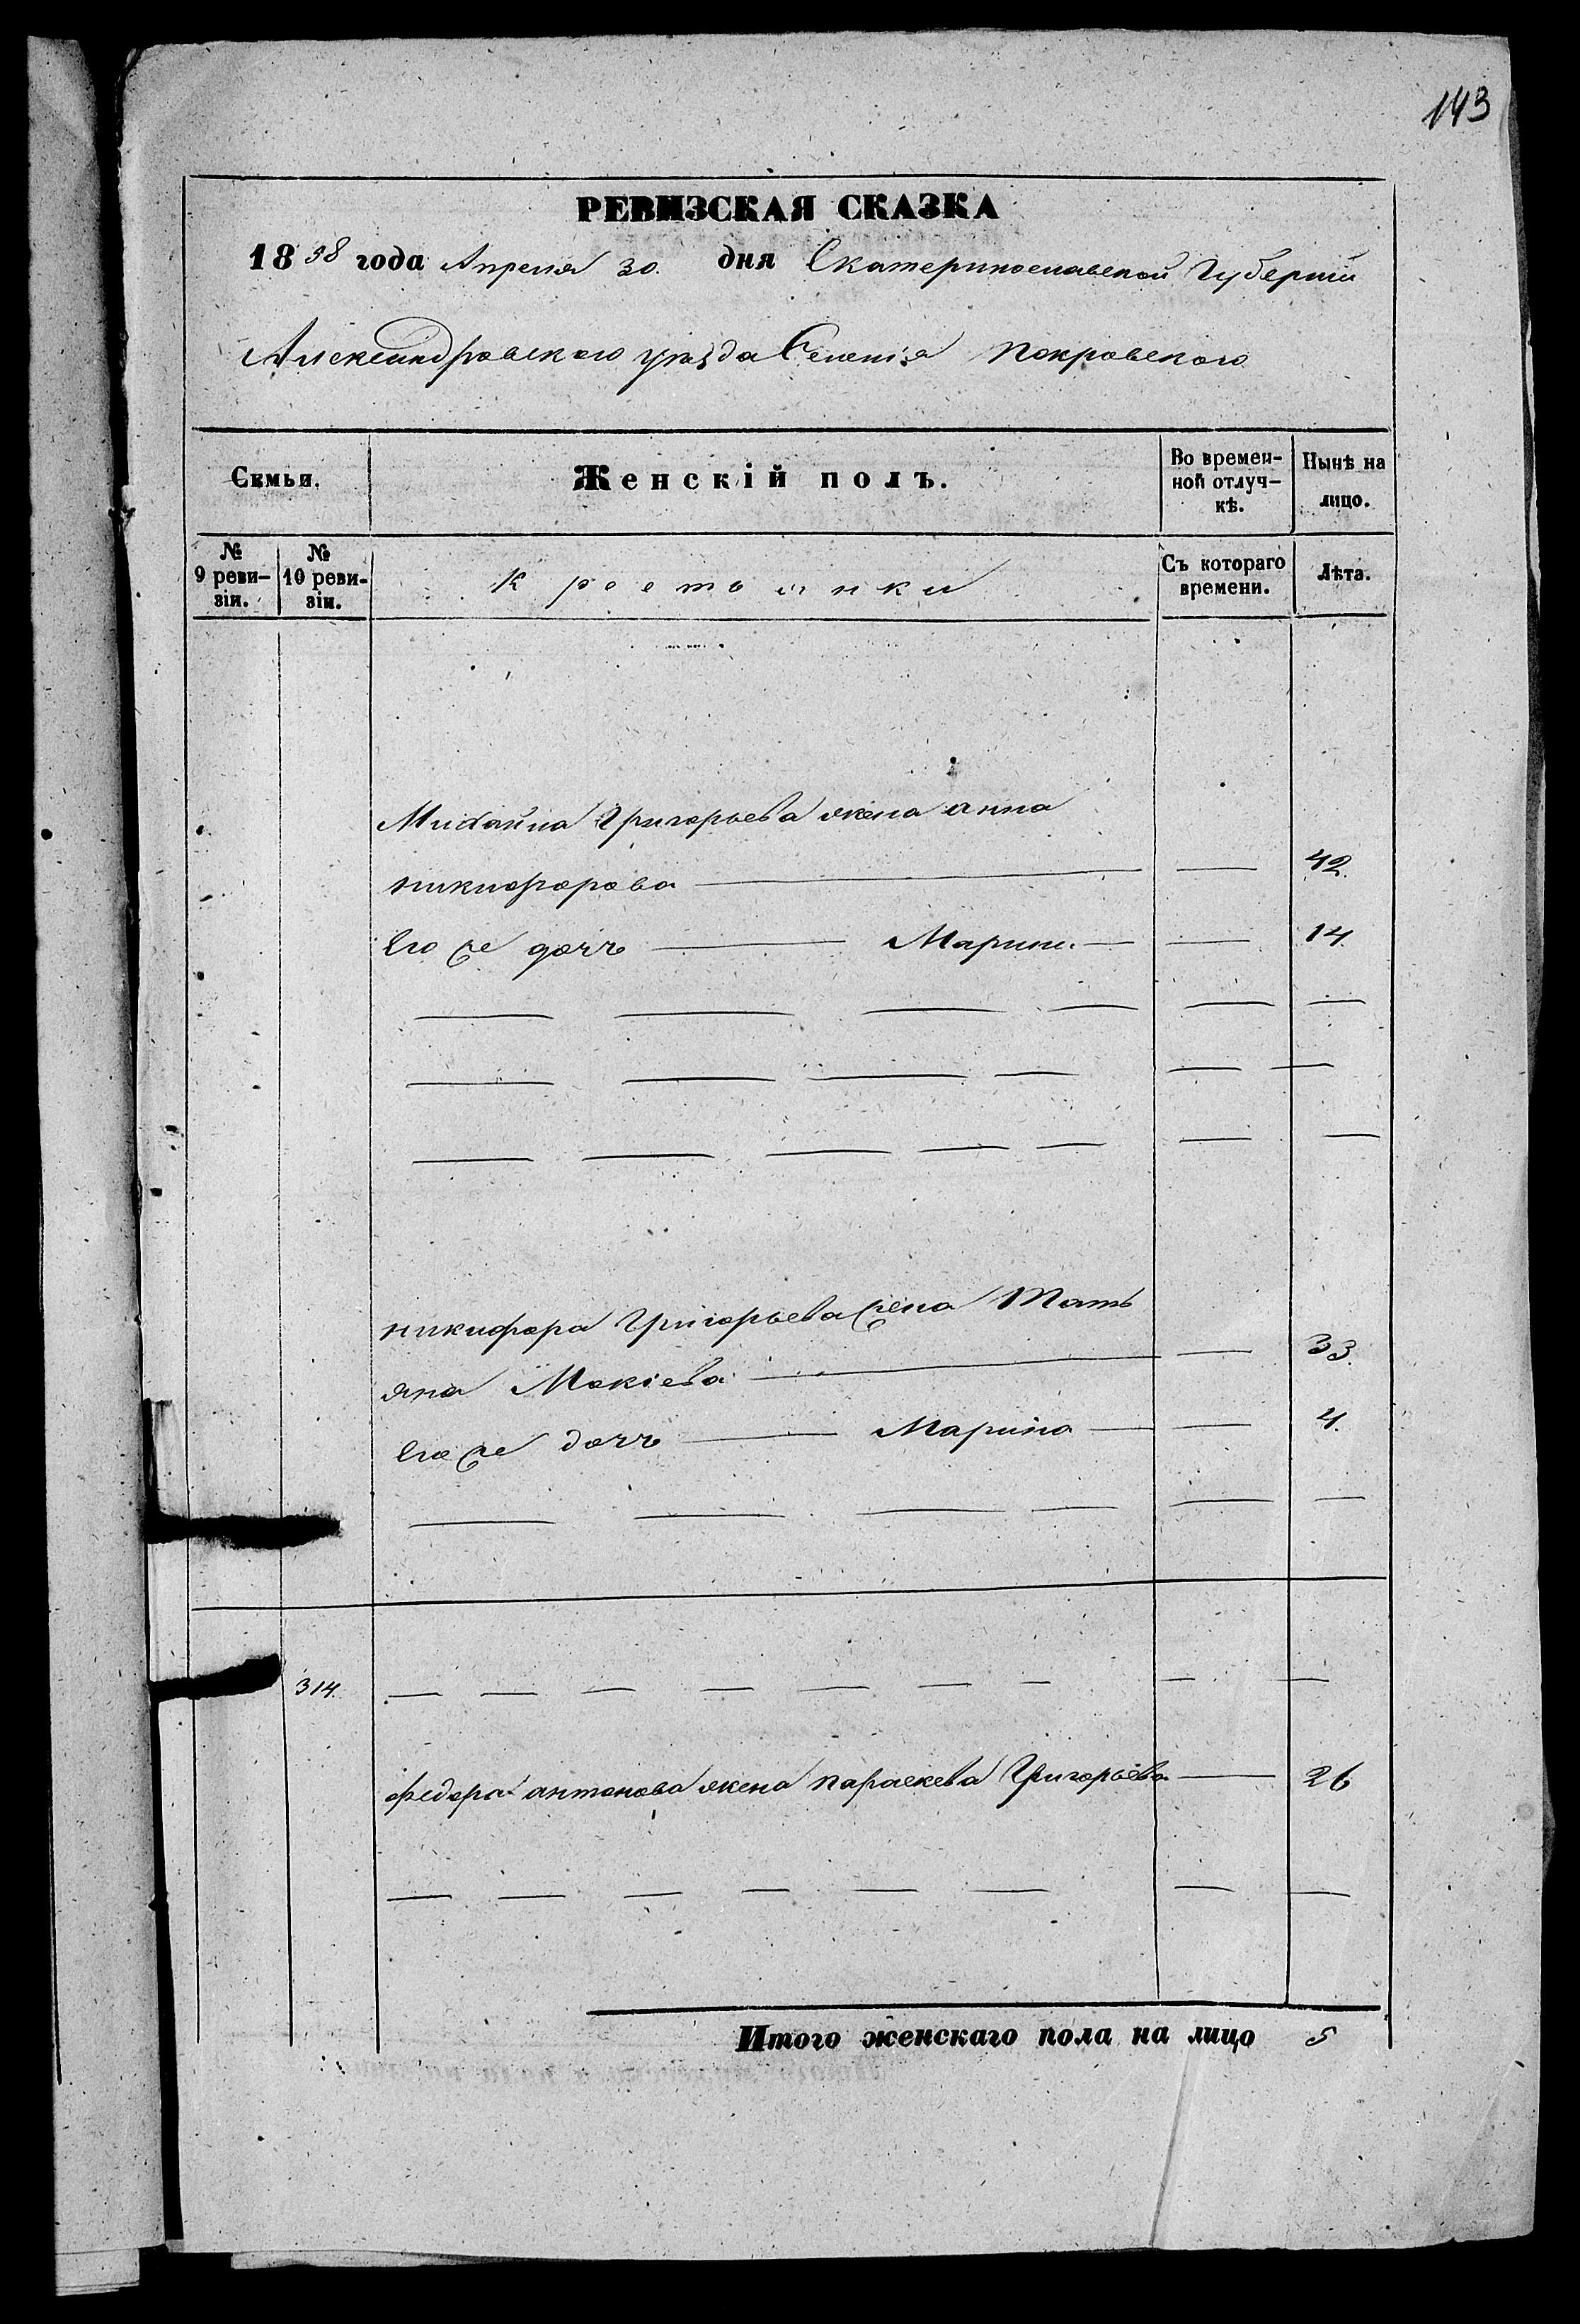 143
РЕВИЗСКАЯ СКАЗКА
1858 года Апреля 30. дня Екатеринославской Губернии
Александровского уезда Селенія Покровского
Семьи.
Женскій полъ.
Во времен-
ной отлуч-
кѣ.
Нынѣ на
лицо.
№
9 реви-
зіи.
№
10 реви-
зіи.
Крестьянки
Съ котораго
времени.
Лѣта.
Михайла Григорьева жена анна
никифорова — — 42.
Его же дочь — Марина — — 14.
никифора Григорьева жена Тать
яна Мокіева — — 33.
Его же дочь — Марина — — 4.
314.
федора антонова жена параскева Григорьева — 26
Итого женскаго пола на лицо 5